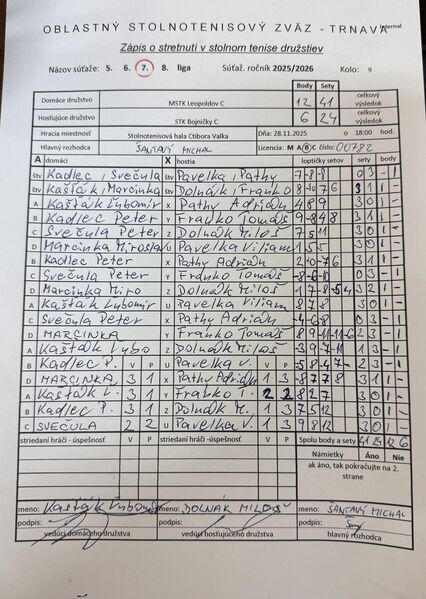 Internal
OBLASTNÝ STOLNOTENISOVÝ ZVÄZ - TRNAVA
Zápis o stretnutí v stolnom tenise družstiev
Názov súťaže: 5. 6. 7. 8. liga Súťaž. ročník 2025/2026 Kolo: 9
Body Sety celkový výsledok
Domáce družstvo MSTK Leopoldov C 12 41
Hosťujúce družstvo STK Bojničky C 6 24 celkový výsledok
Hracia miestnosť Stolnotenisová hala Ctibora Valka Dňa: 28.11.2025 o 18:00 hod.
Hlavný rozhodca ŠANTAVÝ MICHAL Licencia: M A B C číslo: 00782
A domáci X hostia loptičky setov sety body
štv Kadlec, Svečuľa štv Pavelka, Pathy 7-8-8 03 -1
štv Kašťák, Marcinka štv Dolnák, Franko 31 1-
A Kašťák Ľubomír X Pathy Adrián 489 30 1-
B Kadlec Peter Y Franko Tomáš 31 1-
C Svečuľa Peter Z Dolnák Miloš 7511 30 1-
D Marcinka Miroslav U Pavelka Viliam 155 30 1-
B Kadlec Peter X Pathy Adrián 31 1-
C Svečuľa Peter Y Franko Tomáš -8-6-10 03 -1
D Marcinka Miro Z Dolnák Miloš 32 1-
A Kašťák Ľubomír U Pavelka Viliam 878 30 1-
C Svečuľa Peter X Pathy Adrián -4-6-8 03 -1
D MARCINKA Y Franko Tomáš 23 -1
A Kašťák Ľubo Z Dolnák Miloš 13 -1
B Kadlec P. V P U Pavelka V. V P 23 -1
D MARCINKA 3 1 X Pathy Adrián 1 3 -8778 31 1-
A Kašťák Ľ. 3 1 Y Franko T. 2 2 827 30 1-
B Kadlec P. 3 1 Z Dolnák M. 1 3 7512 30 1-
C SVEČUĽA 2 2 U Pavelka V. 1 3 9812 30 1-
striedaní hráči - úspešnosť V P striedaní hráči - úspešnosť V P Spolu body a sety 41 24 12 6
Námietky Áno Nie
ak áno, tak pokračujte na 2. strane
meno: Kašťák Ľubomír meno: DOLNÁK MILOŠ meno: ŠANTAVÝ MICHAL
podpis: podpis: podpis:
vedúci domáceho družstva vedúci hosťujúceho družstva hlavný rozhodca